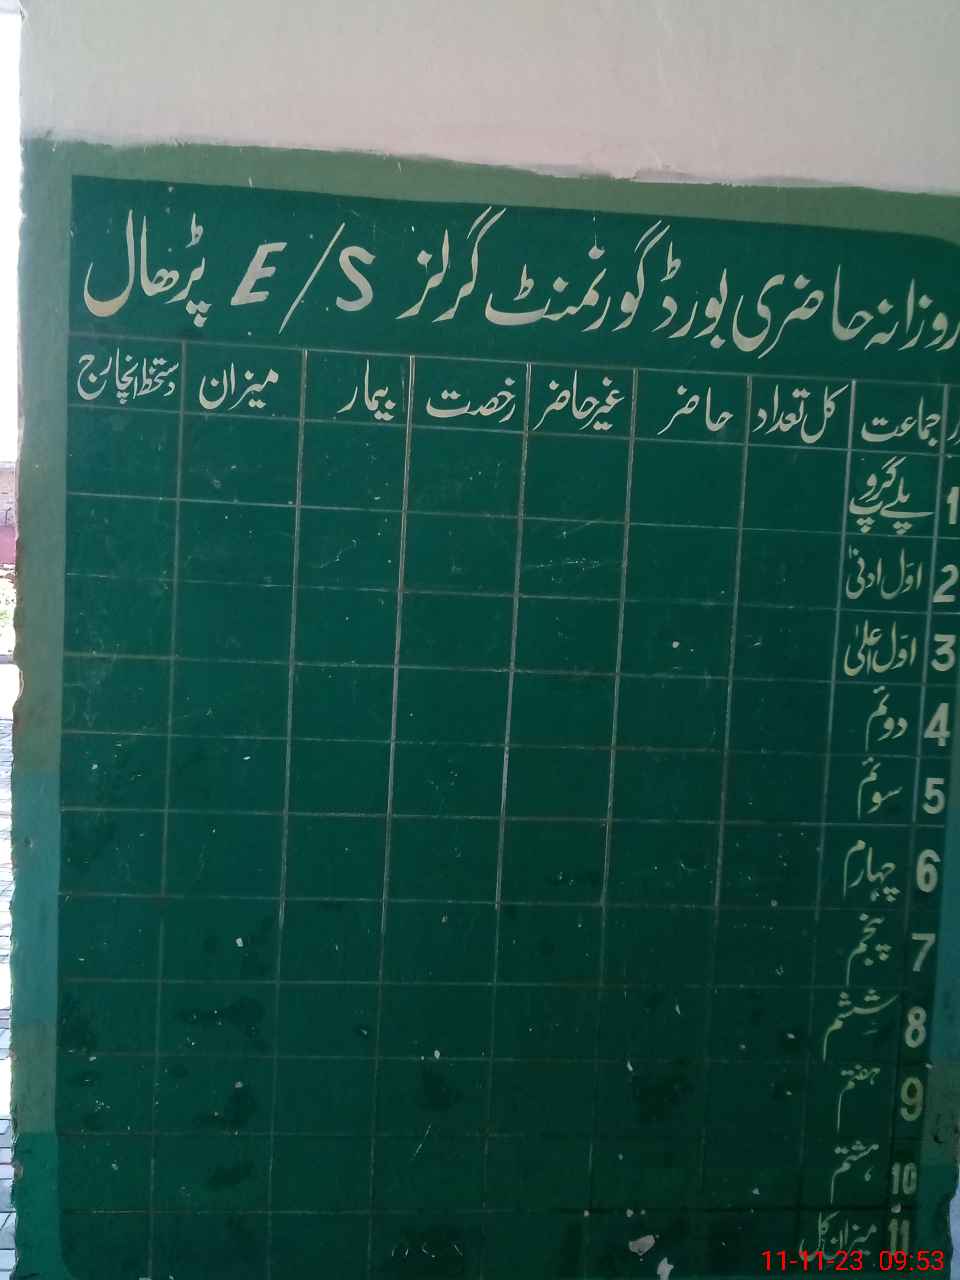 روزانہ حاضری بورڈ گورنمنٹ گرلز E/S پڑھال
جماعت کل تعداد حاضر غیر حاضر رخصت بیمار میزان دستخط انچارج
1 پلے گروپ
2 اوّل ادنیٰ
3 اوّل اعلیٰ
4 دوئم
5 سوئم
6 چہارم
7 پنجم
8 ششم
9 ہفتم
10 ہشتم
11 میزان کل
11-11-23 09:53